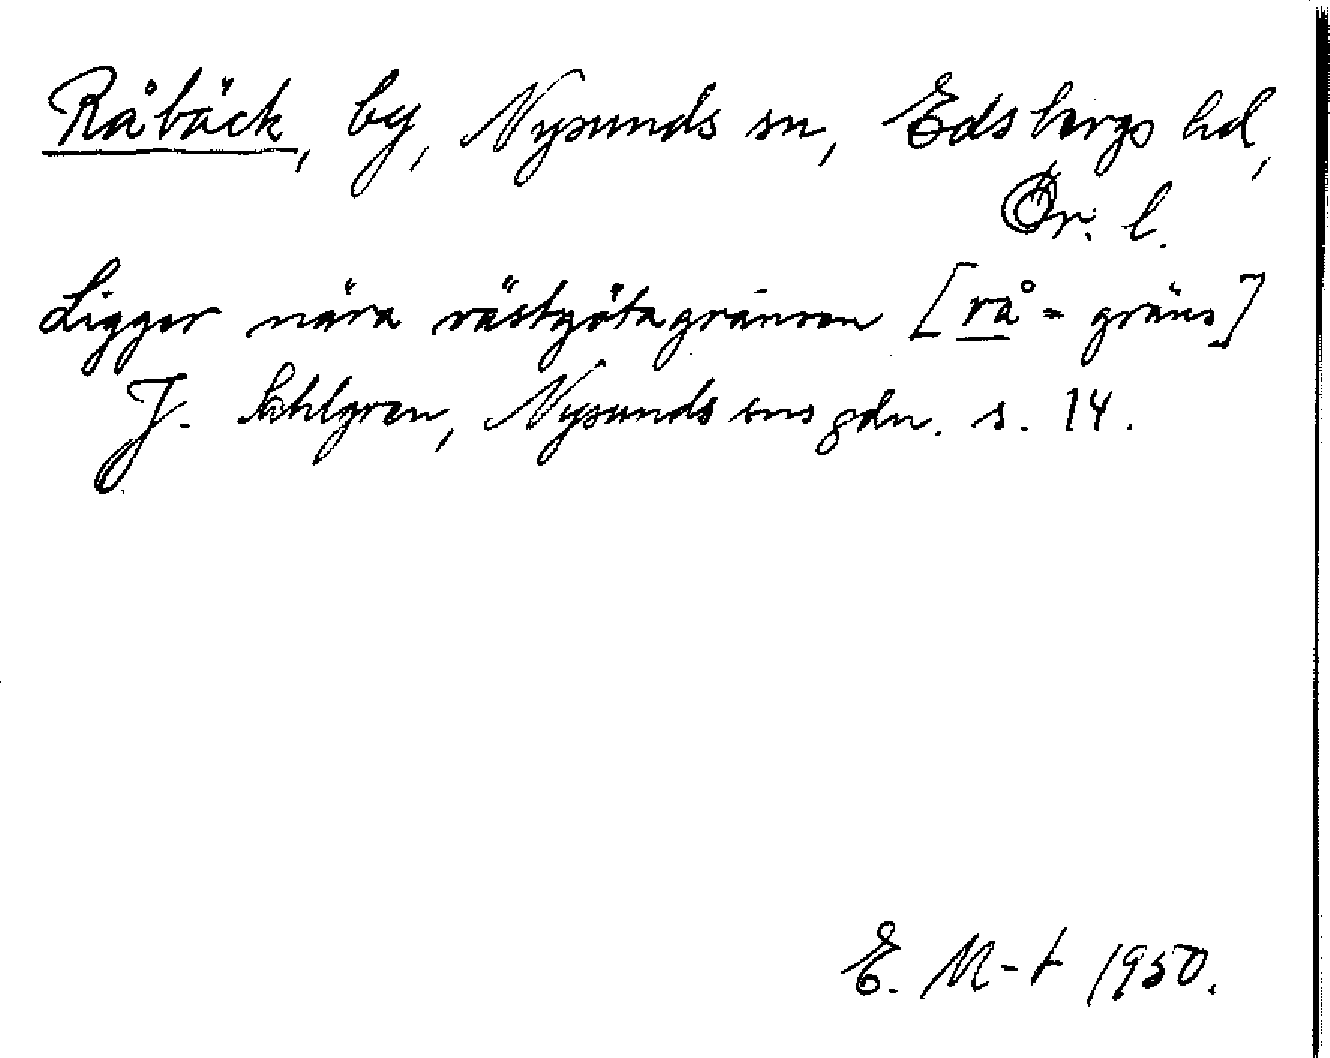 Råbäck, by, Nysunds sn, Edsbergs hd,
Ör. l.
Ligger nära västgötagränsen [rå = gräns]
J. Sahlgren, Nysunds sns gdn. s. 14.
E. M-t 1950.